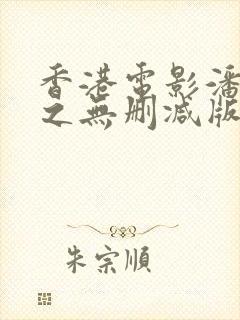 香港電影潘
之無刪減版
朱宗順